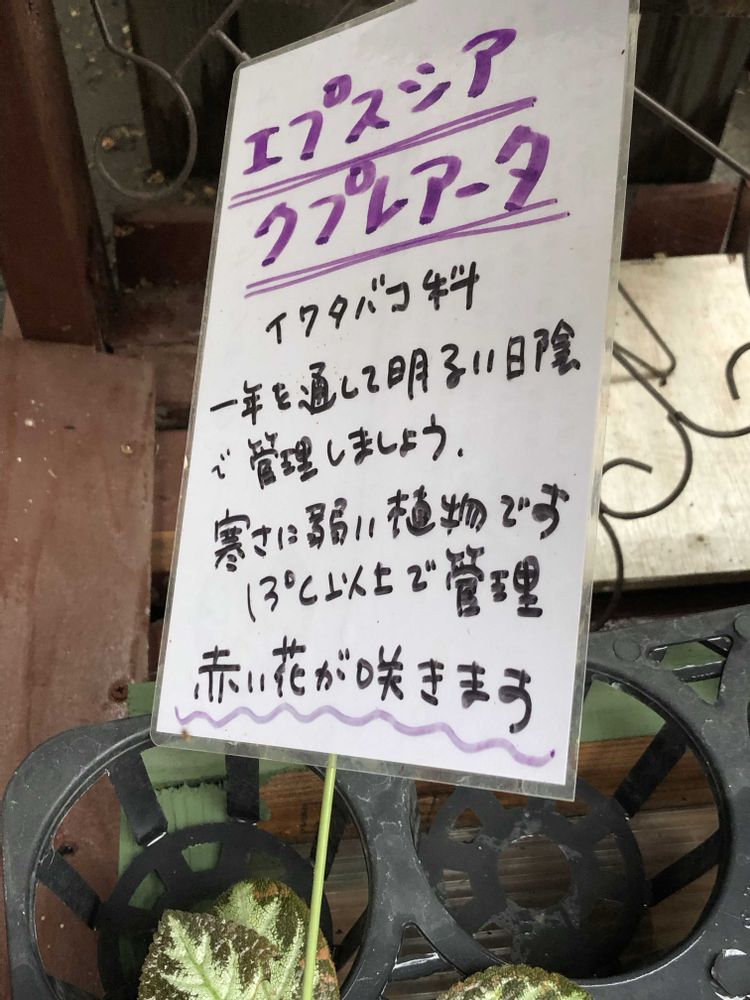 エプスシア
クプレアータ
イワタバコ科
一年を通して明るい日陰
で管理しましょう.
寒さに弱い植物です
13℃以上で管理
赤い花が咲きます